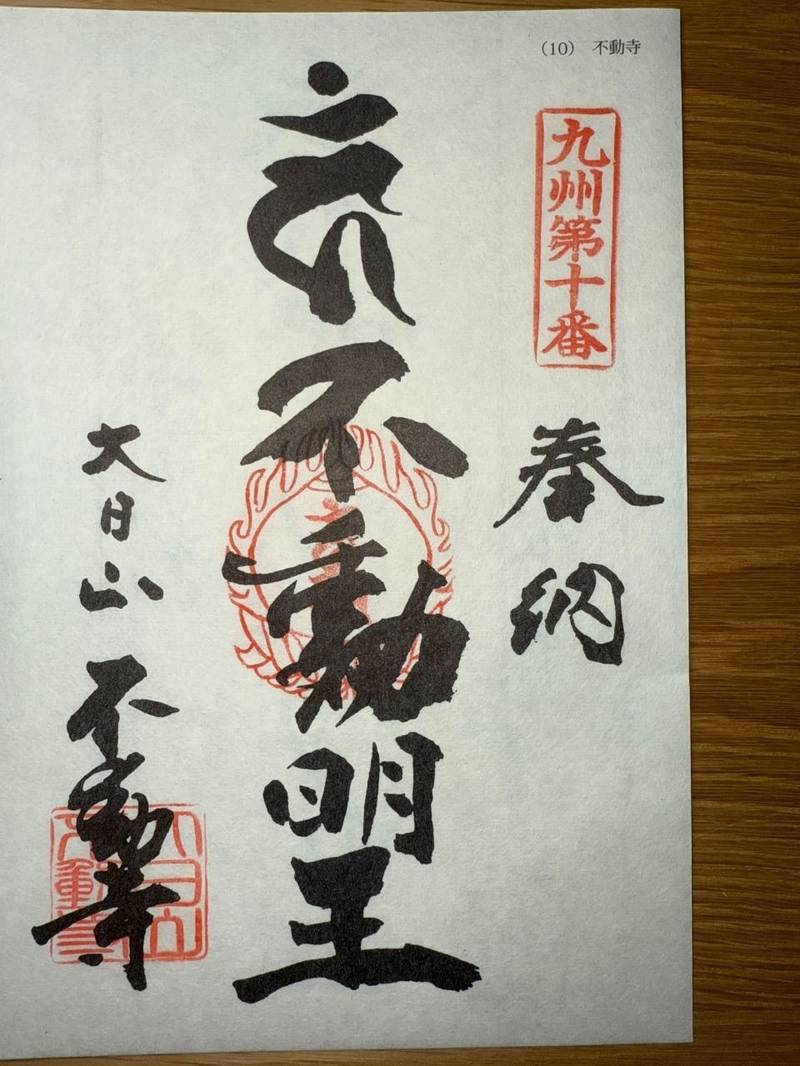 (10) 不動寺
九州第十番
奉納
不動明王
大日山
不動寺